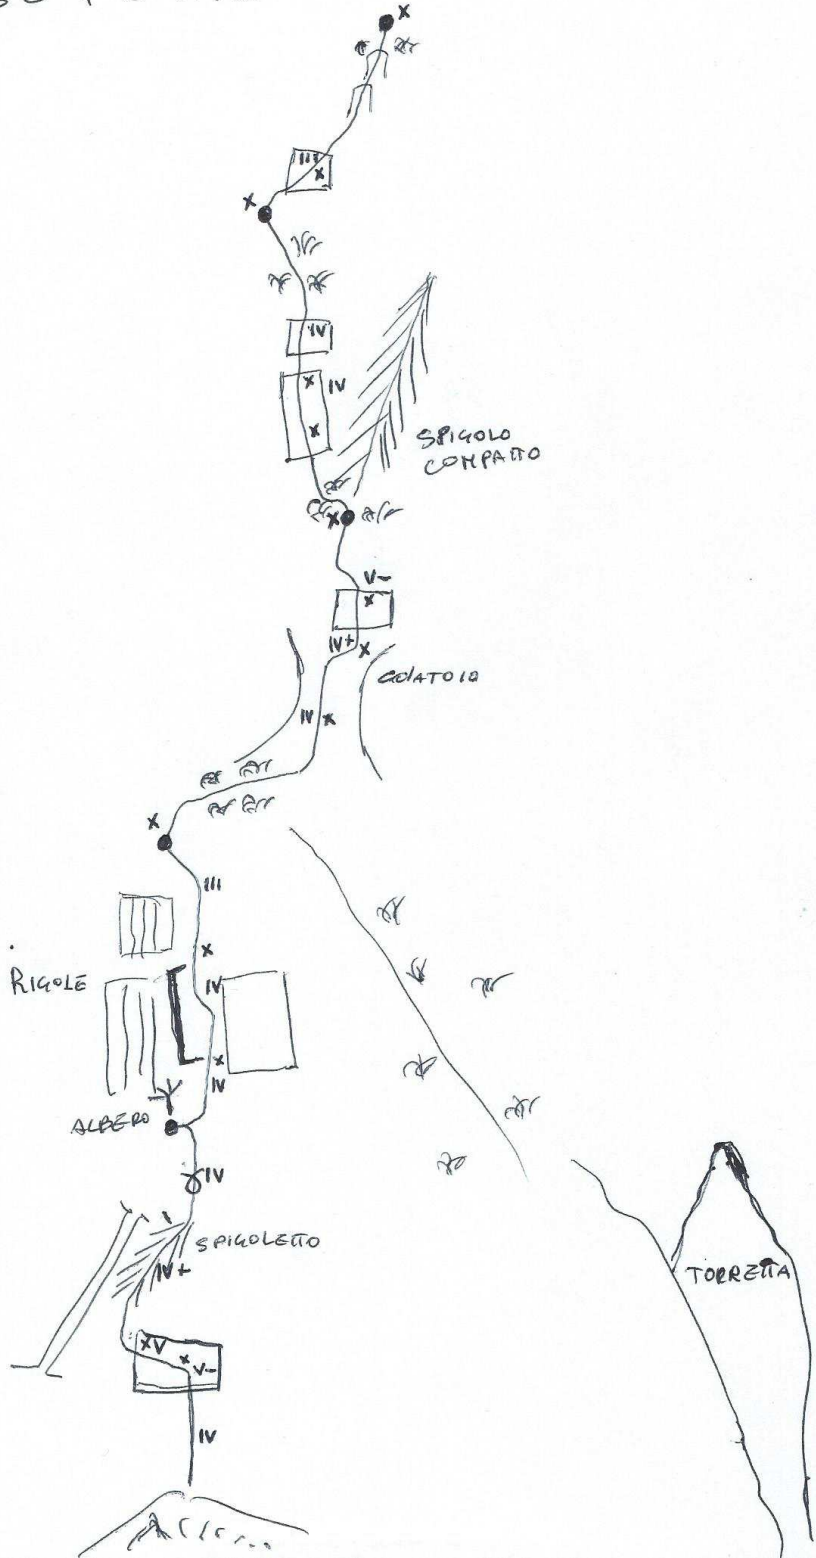 X
III
X
X
IV
X
IV
X
SPIGOLO
COMPATTO
X
V-
X
IV+
X
COLATOIO
IV
X
X
III
X
RIGOLE
IV
X
IV
ALBERO
IV
SPIGOLETTO
IV+
TORRETTA
XV
X
V-
IV